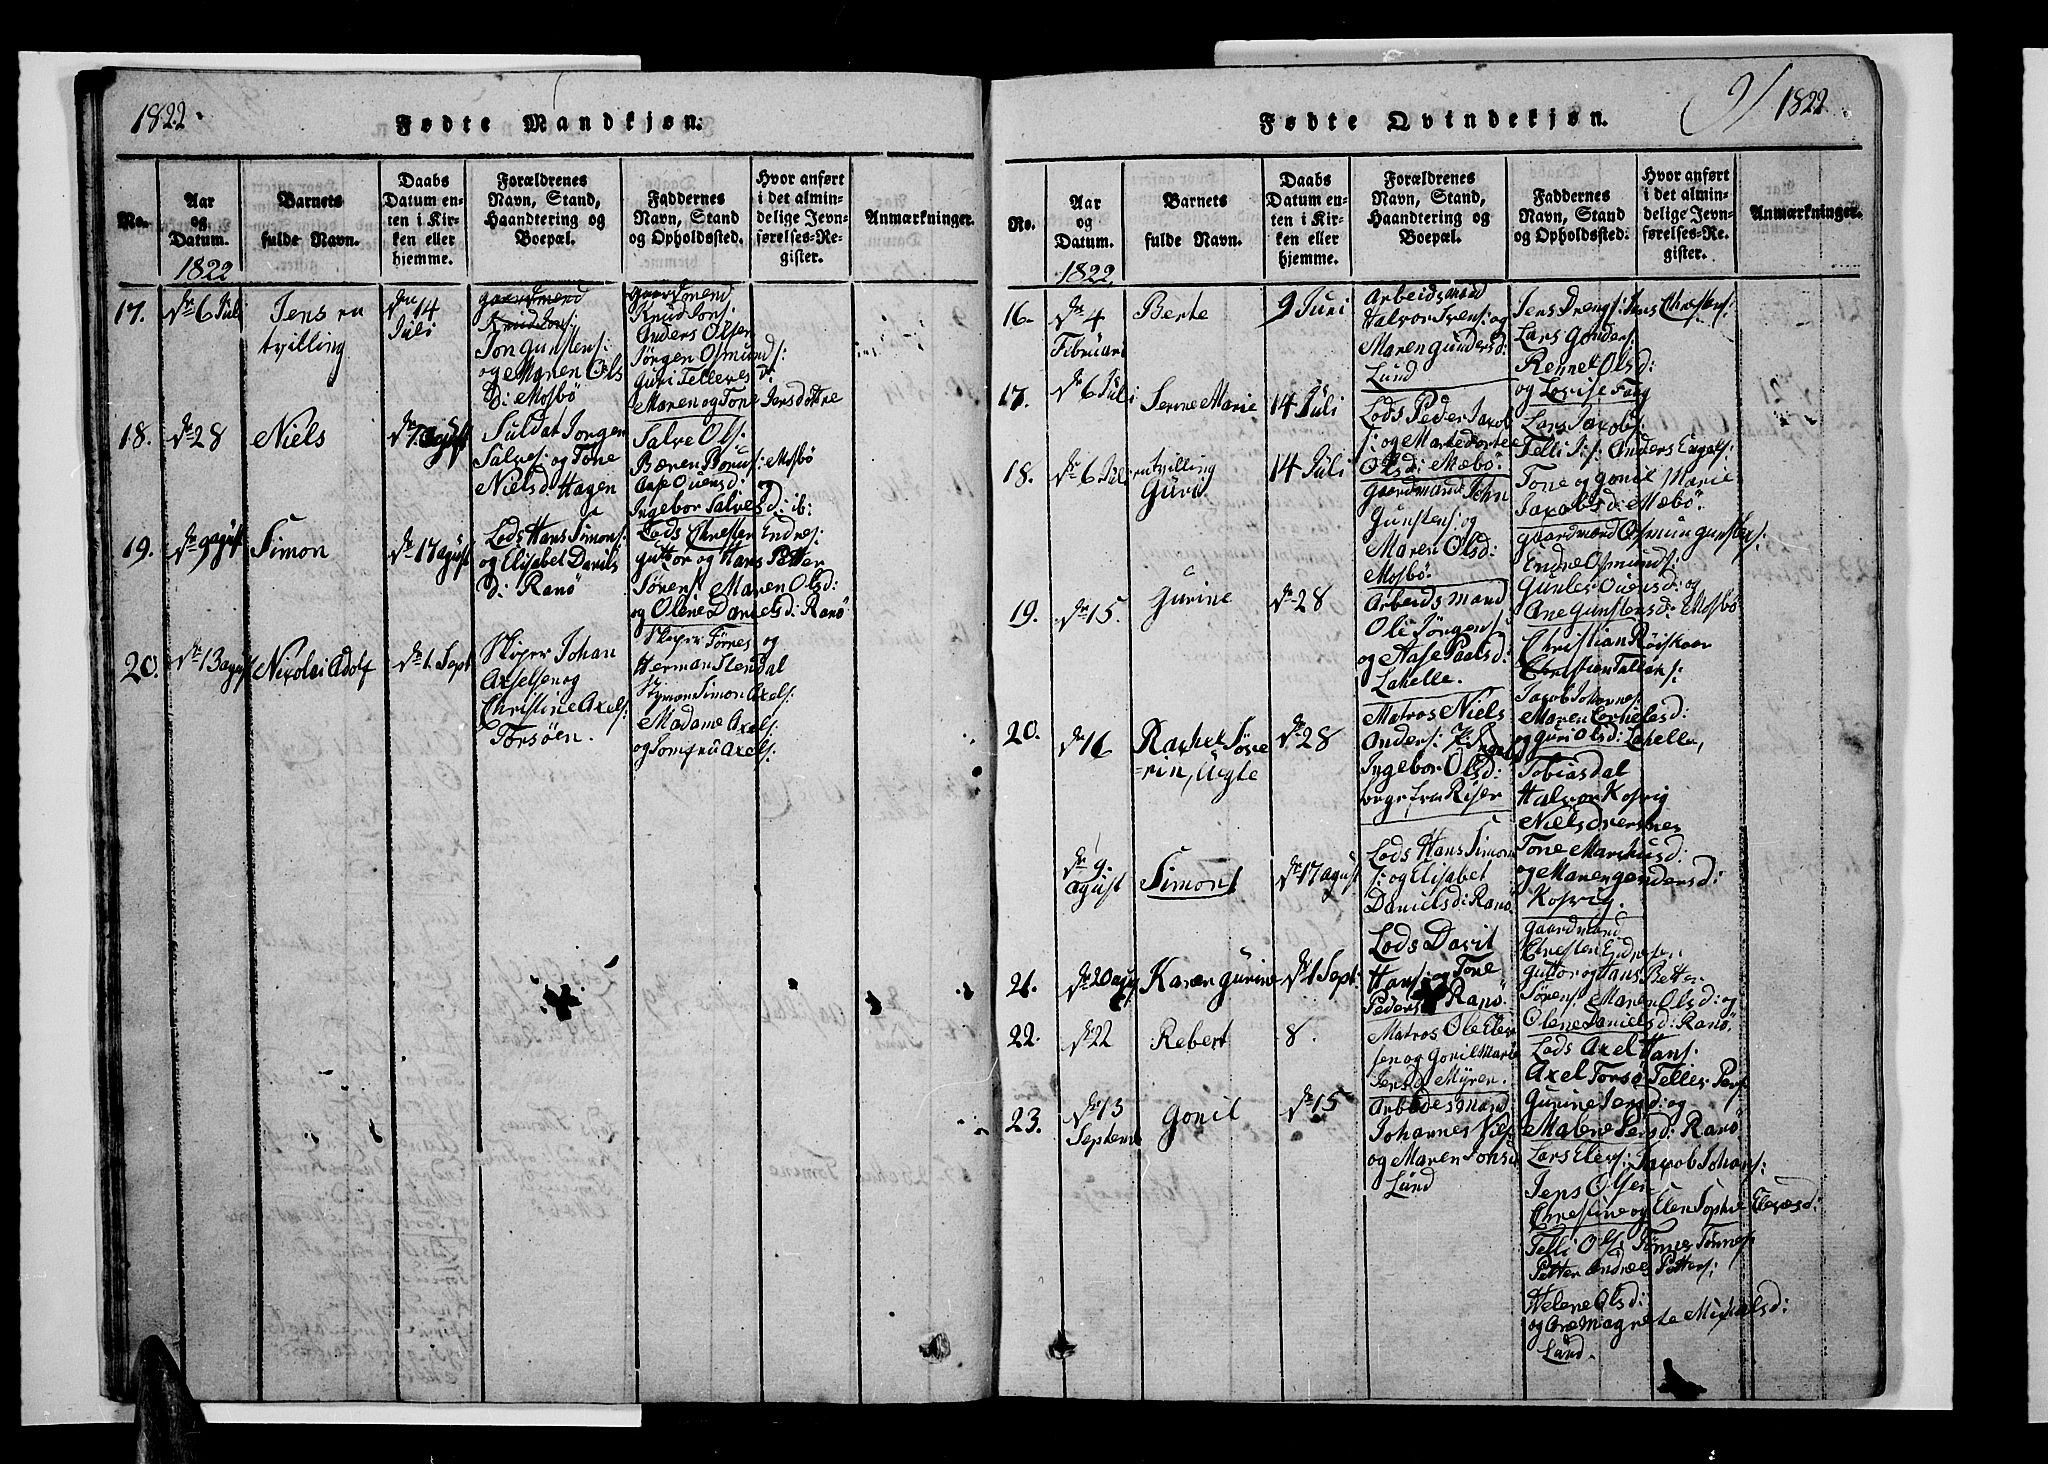 1822.
Fødte Mandkjøn.
No.
Aar
og
Datum.
Barnets
fulde Navn.
Daabs
Datum en-
ten i Kir-
ken eller
hjemme.
Forældrenes
Navn, Stand,
Haandtering og
Boepæl.
Faddernes
Navn, Stand
og Opholdssted.
Hvor anført
i det almin-
delige Jevn-
førelses-Re-
gister.
Anmærkninger.
1822
17.
Dn 6 Juli
Jens en
tvilling
Dn 14
Juli
gaardmend
Knud Jons:
Jon gunstens:
og Maren Ols
D: Mosbö
gaardmend
Knud Jons:
Anders Olsen
Jörgen Osmunds:
Guri Telleves D:
Maren og Tone Jensdottre
18.
Dn 28
Niels
Suldat Jorgen
Salves: og Tone
Nielsd: Hagen
Salve Ols:
Bæren Bonus: Mosbö
Aase Ouensd:
Ingebor Salvesd: ib:
19.
Dn 9 agust
Simon
Dn 17 agust
Lods Hans Simons:
og Elisabet Davids
D: Ranö
Lods Chresten Endres:
guttor og Hans Petter
Sörens: Maren Olsd:
og Olene Danielsd: Ranö
20.
Dn 13 agust
Nicolai Adolf
Dn 1. Sept
Skiper Johan
Axelsen og
Christine Axels:
Torsöen.
Skiper Törres og
Herman Stendal
Styrman Simon Axels:
Madame Axels:
og Jomfru Axels:
9/ 1822
Fødte Qvindekjøn.
No.
Aar
og
Datum.
Barnets
fulde Navn.
Daabs
Datum en-
ten i Kir-
ken eller
hjemme.
Forældrenes
Navn, Stand,
Haandtering og
Boepæl.
Faddernes
Navn, Stand
og Opholdssted.
Hvor anført
i det almin-
delige Jevn-
førelses-Re-
gister.
Anmærkninger.
1822
16.
Dn 4
Februari
Berte
9 Juni
Arbeidsmand
Halvor Ivens: og
Maren Gundersd:
Lund
Jens Drengs: Jens Chrestens:
Lars Gonders:
Rennet Olsd:
og Lovise Fag
17.
Dn 6 Juli
Serine Marie
14 Juli
Lods Peder Jacob
s: og Marte dortee
Olsd: Mæbö
Lars Jacobs:
Telli J:s: Anders Engels:
Tone og gonil Marie
Jacobsd: Mæbö
18.
Dn 6 Juli
en tvilling
Guri
14 Juli
gaardmand John
Gunstens: og
Maren Olsd:
Mosbö
gaardmand Osmun gunstens:
Endre Osmunds:
Gunles Ouensd: og
Ane Gunstensd: Mosbö
19.
Dn 15.
Gurine
Dn 28
Arbeidsmand
Oli Jörgens:
og Aase Paalsd:
Lahelle.
Christian Röiskaar
Christian Tellefs:
Jacob Johannes:
Maren Cornelesd:
og guri Olsd: Lahelle,
20.
Dn 16
Rachel Söve
rin, Uegte
Dn 28
Matros Niels
Anders:
Ingebor Olsd:
Tobiasdal
Halvor Kosvig
Niels
Tone Marchusd:
og Maren gondersd:
Kosvig.
Dn 9.
agust
Simont
Dn 17 agust
Lods Hans Simon
s: og Elisabet
Danielsd: Ranö
gaardmand
Chresten Endresen
Guttor og Hans Petter
Sörens: Maren Olsd: og
Olene Danielsd: Ranö
21.
Dn 20 aug
Karen Gurine
Dn 1 Sept:
Lods David
Hans: og Tone
Peders Ranö
Lods Axel Hans:
Axel Torsö Telles Pers
Gurine Jensd: og
Malene Persd: Ranö
22.
Dn 22
Rebert
8.
Matros Ole Eler
sen og Gonil Marie
Jensd Myren.
Lars Elers: Jacob Johans:
Jens Olsen
Chrestine og Elen Sophie Eleresd:
23.
Dn 13
Septem
Gonil
Dn 15
Arbedesmand
Johannes Niels
og Maren Johsd
Lund
Telli Ols: Tönnes Tönnes:
Petter Andreas Petters:
Helene Olsd:
og Ane Magrete Michelsd:
Lund.